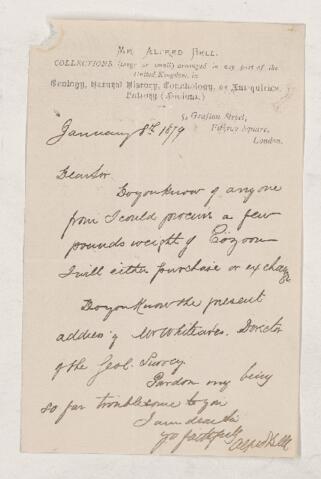 MR ALFRED BELL.
COLLECTIONS (large or small) arranged in any part of the
United Kingdom, in
Geology, Natural History, Conchology, or Antiquities,
Pottery
5, Grafton Street,
Fitzroy Square,
London.
January 8th 1879
Dear Sir
Do you know of anyone
from I could procure a few
pounds weight of Eozoon
I will either purchase or exchange
Do you know the present
address of Mr Whiteaves. Director
of the Geol. Survey
Pardon my being
so far troublesome to you
I am dear Sir
yo faithfully
Alfred Bell